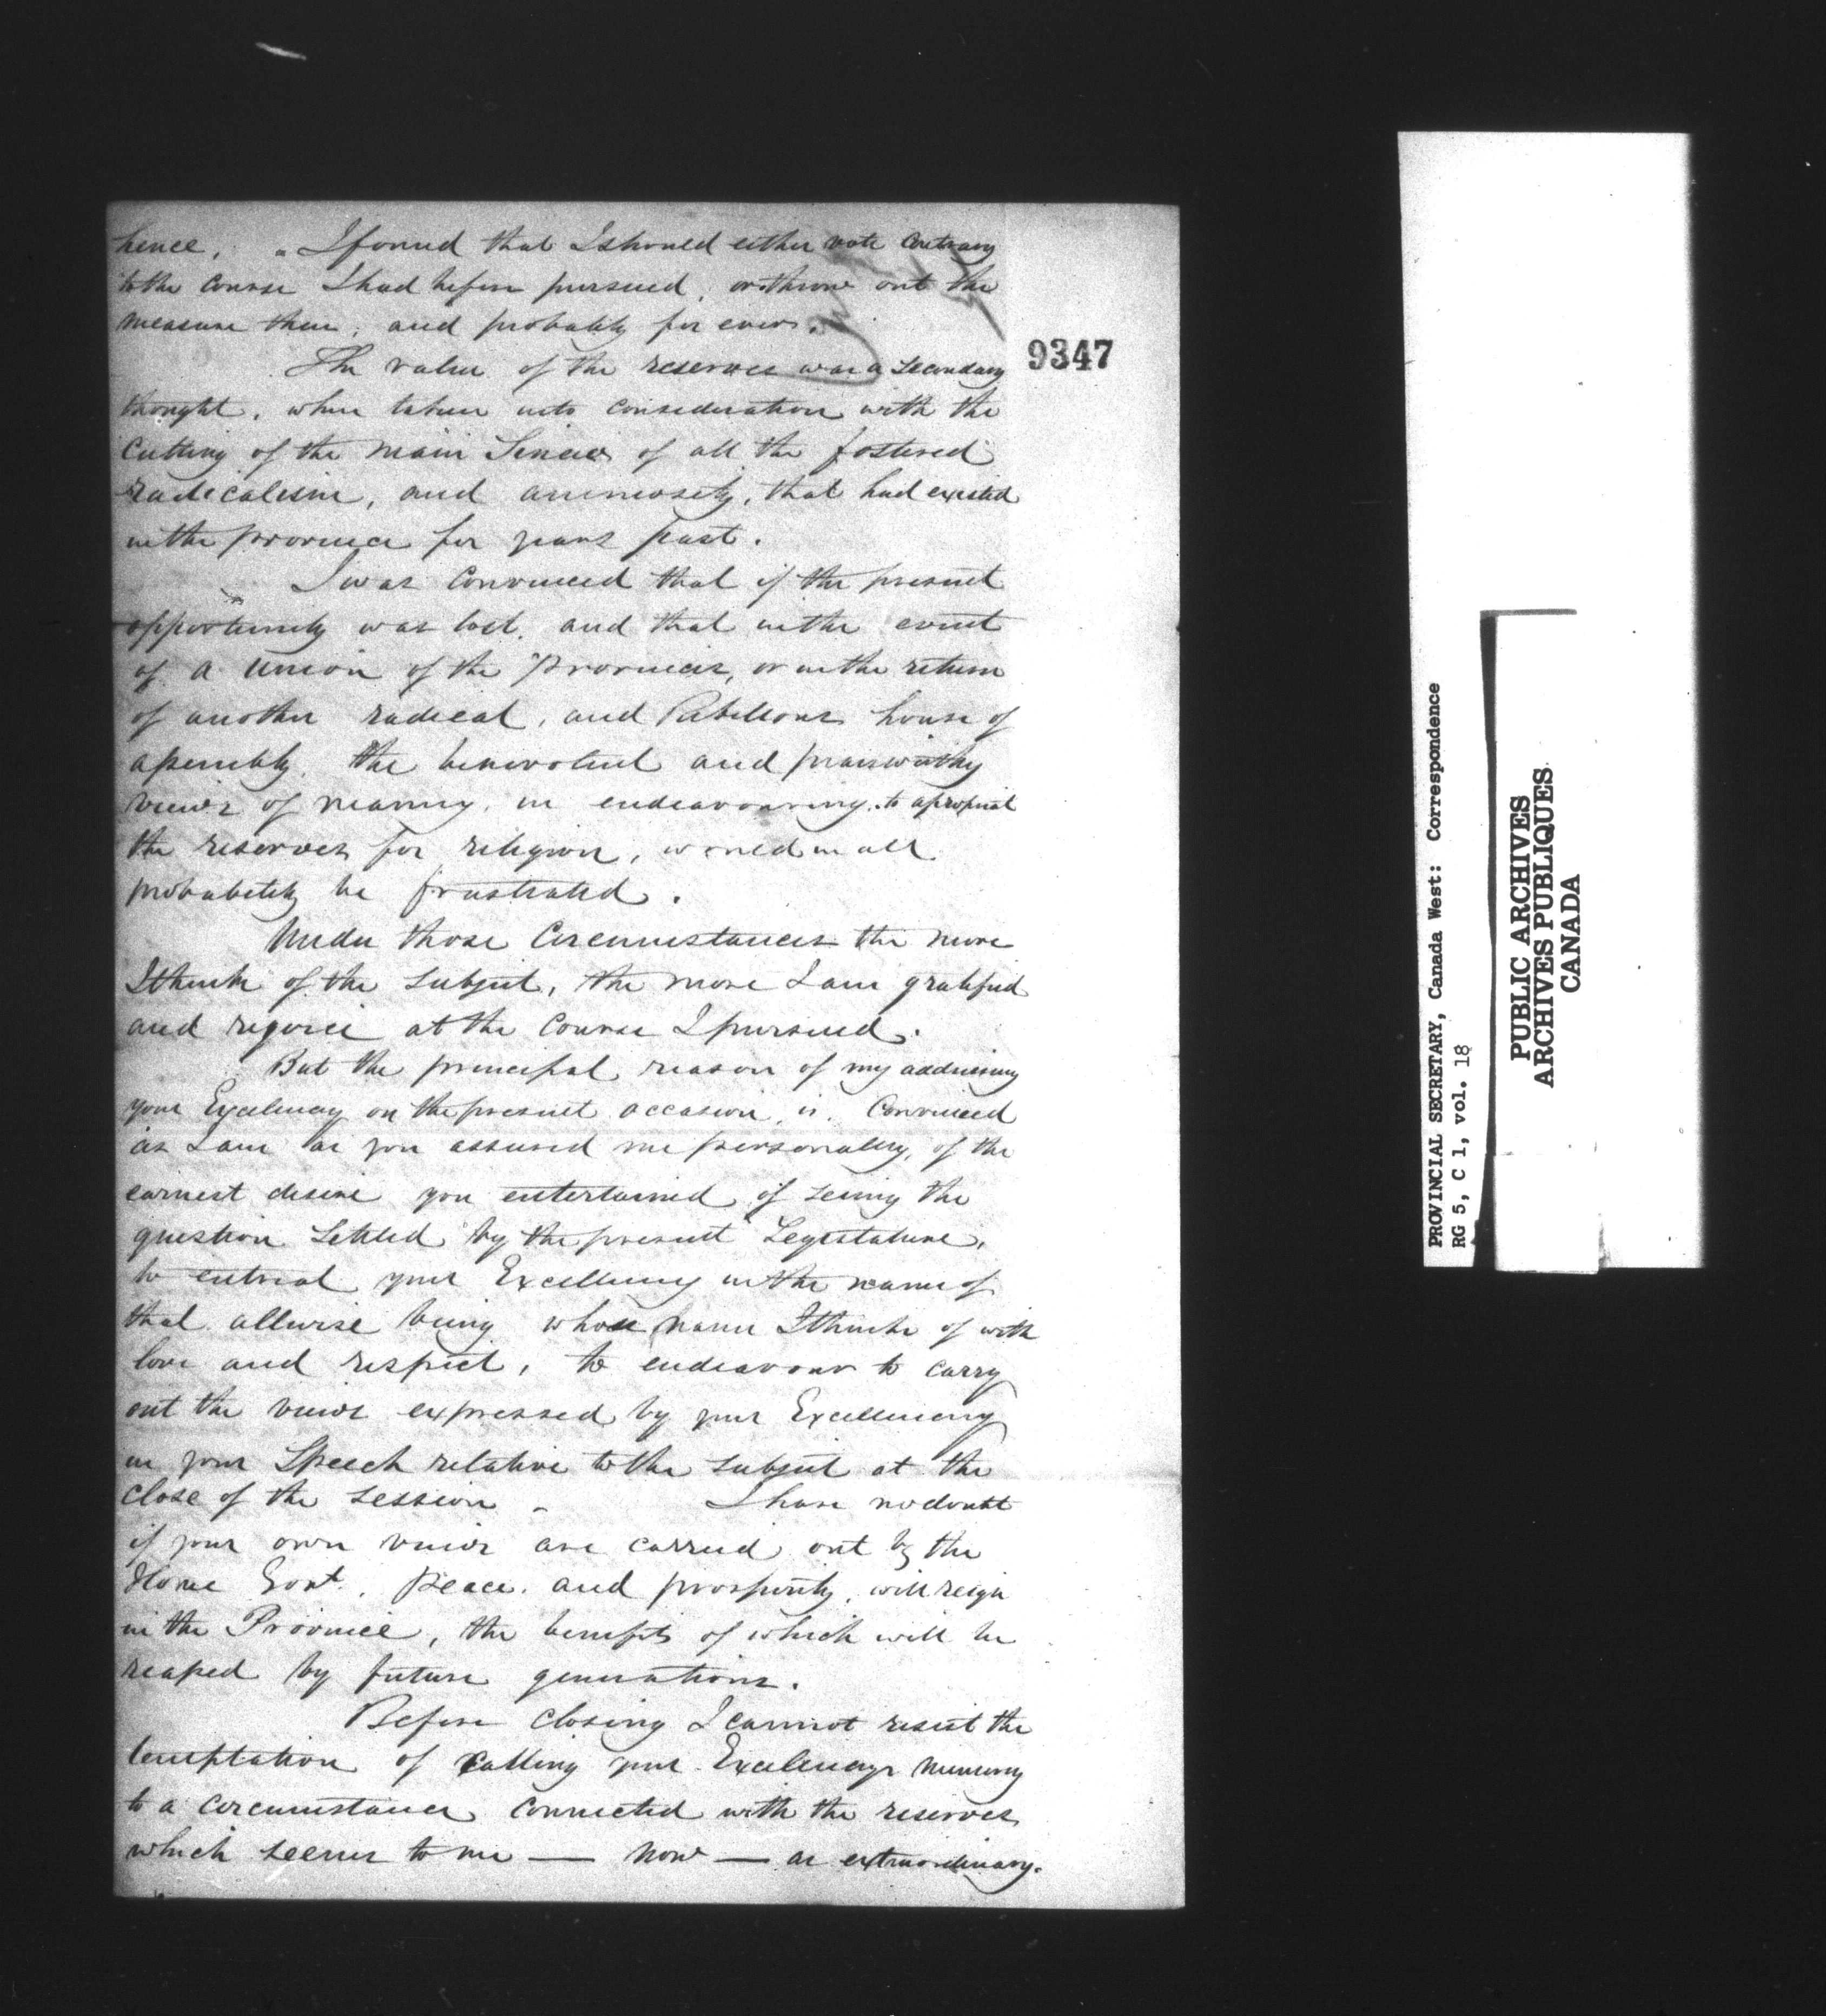 hence. I found that I should either vote contrary
to the course I had before pursued, or throw out the
measure then, and probably for ever.
9347
The value of the reserves was a secondary
thought, when taken into consideration with the
cutting of the main Sinews of all the fostered
radicalism, and animosity, that had existed
in the province for years past.
I was convinced that if the present
opportunity was lost, and that in the event
of a Union of the Provinces, or in the return
of another radical, and Rebellous house of
assembly, the benevolent and praisworthy
views of meaning, in endeavouring to apropriat
the reserves for religion, would in all
probability be frustrated.
Under those circumstances the more
I think of the subject, the more I am gratified
and rejoice at the course I pursued.
But the principal reason of my addressing
your Excelency on the present occasion, is, convinced
as I am as you assured me personally, of the
earnest desire you entertained of seeing the
question settled by the present Legislature,
to entreat your Excellency in the name of
that allwise being whose name I think of with
love and respect, to endeavour to carry
out the views expressed by your Excellency
in your Speech relative to the subject at the
close of the session - I have no doubt
if your own views are carried out by the
Home Govt. Peace, and prosperity, will reign
in the Province, the benefits of which will be
reaped by future generations.
Before closing I cannot resist the
temptation of calling your Excelencys memory
to a circumstance connected with the reserves
which seems to me — now — as extraordinary.
PROVINCIAL SECRETARY, Canada West: Correspondence
RG 5, C 1, vol. 18
PUBLIC ARCHIVES
ARCHIVES PUBLIQUES
CANADA